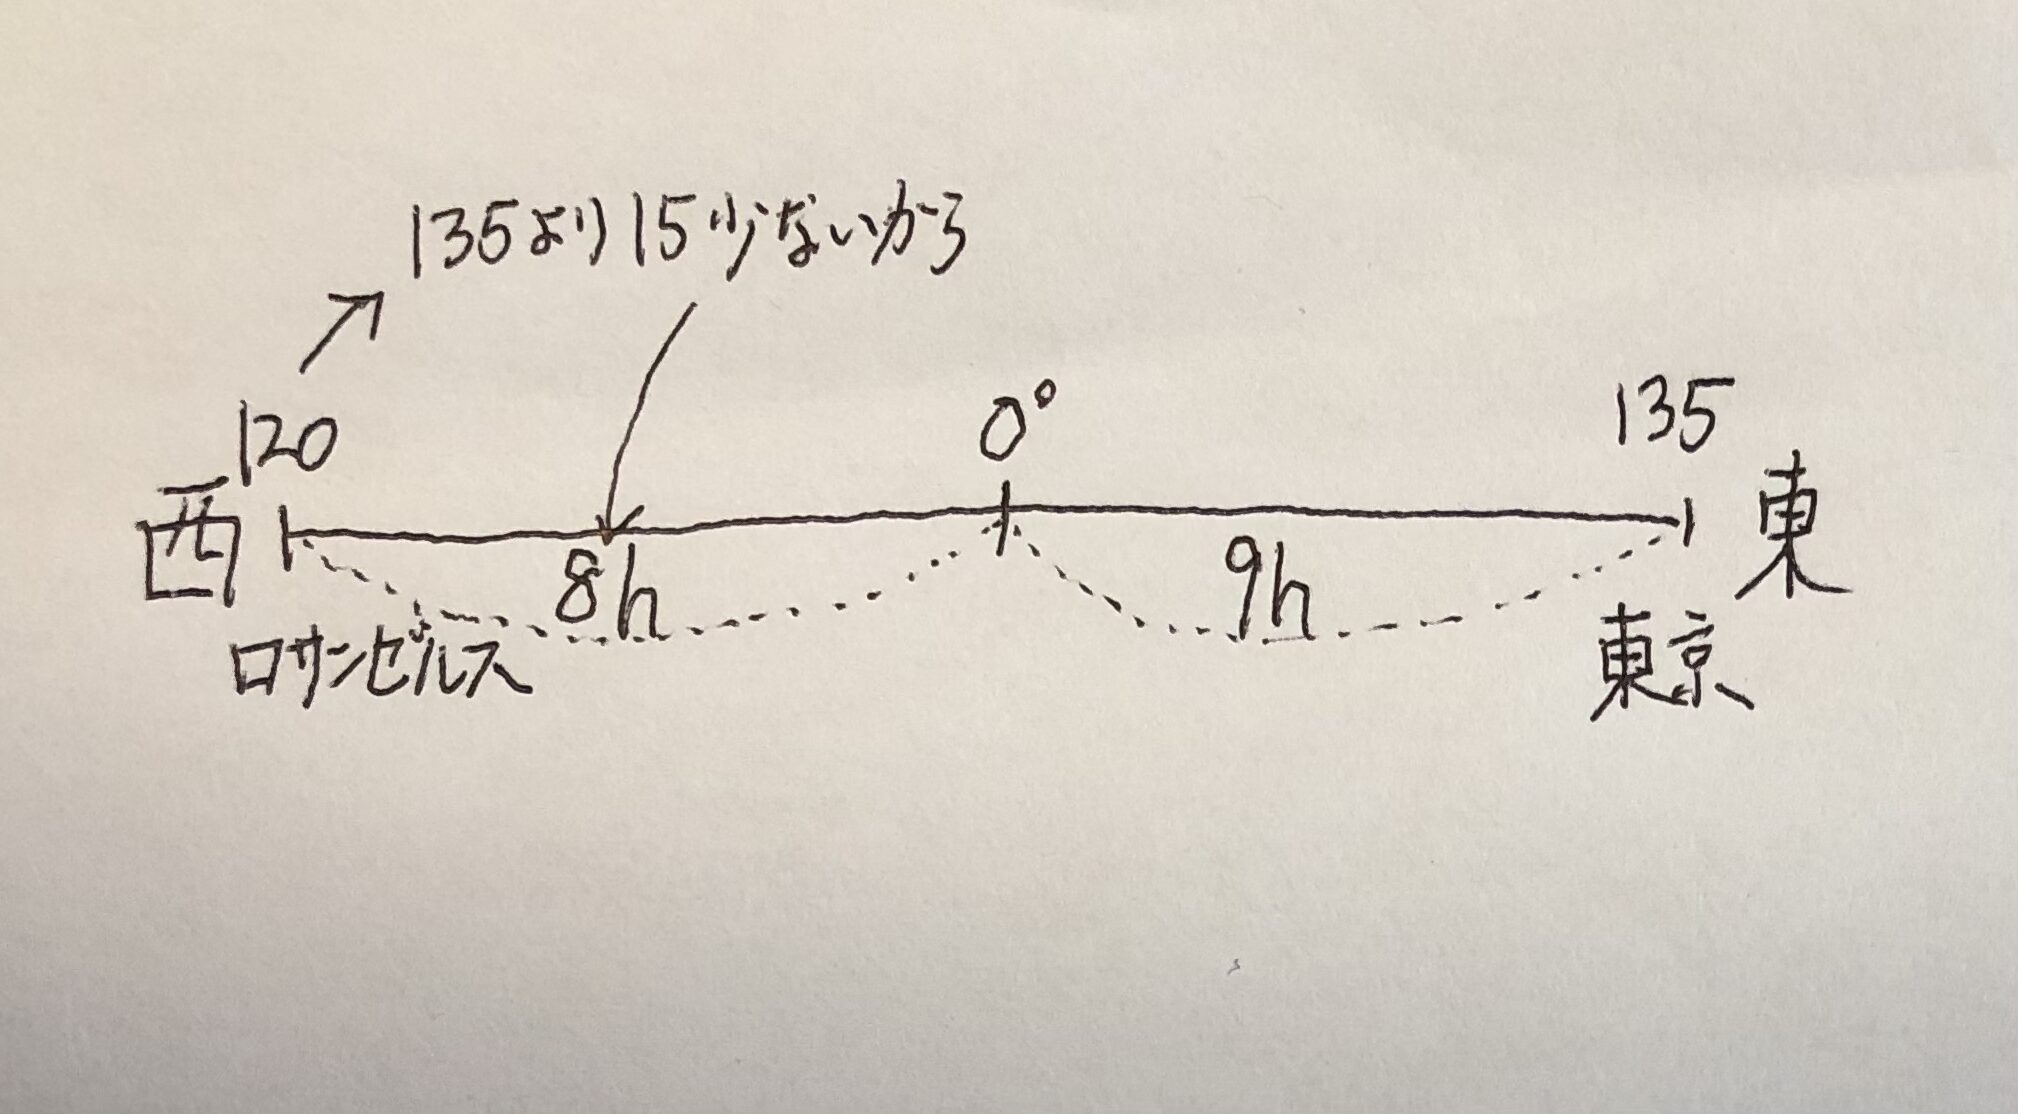 135より15少ないから
120
0°
135
西
東
8h
9h
ロサンゼルス
東京